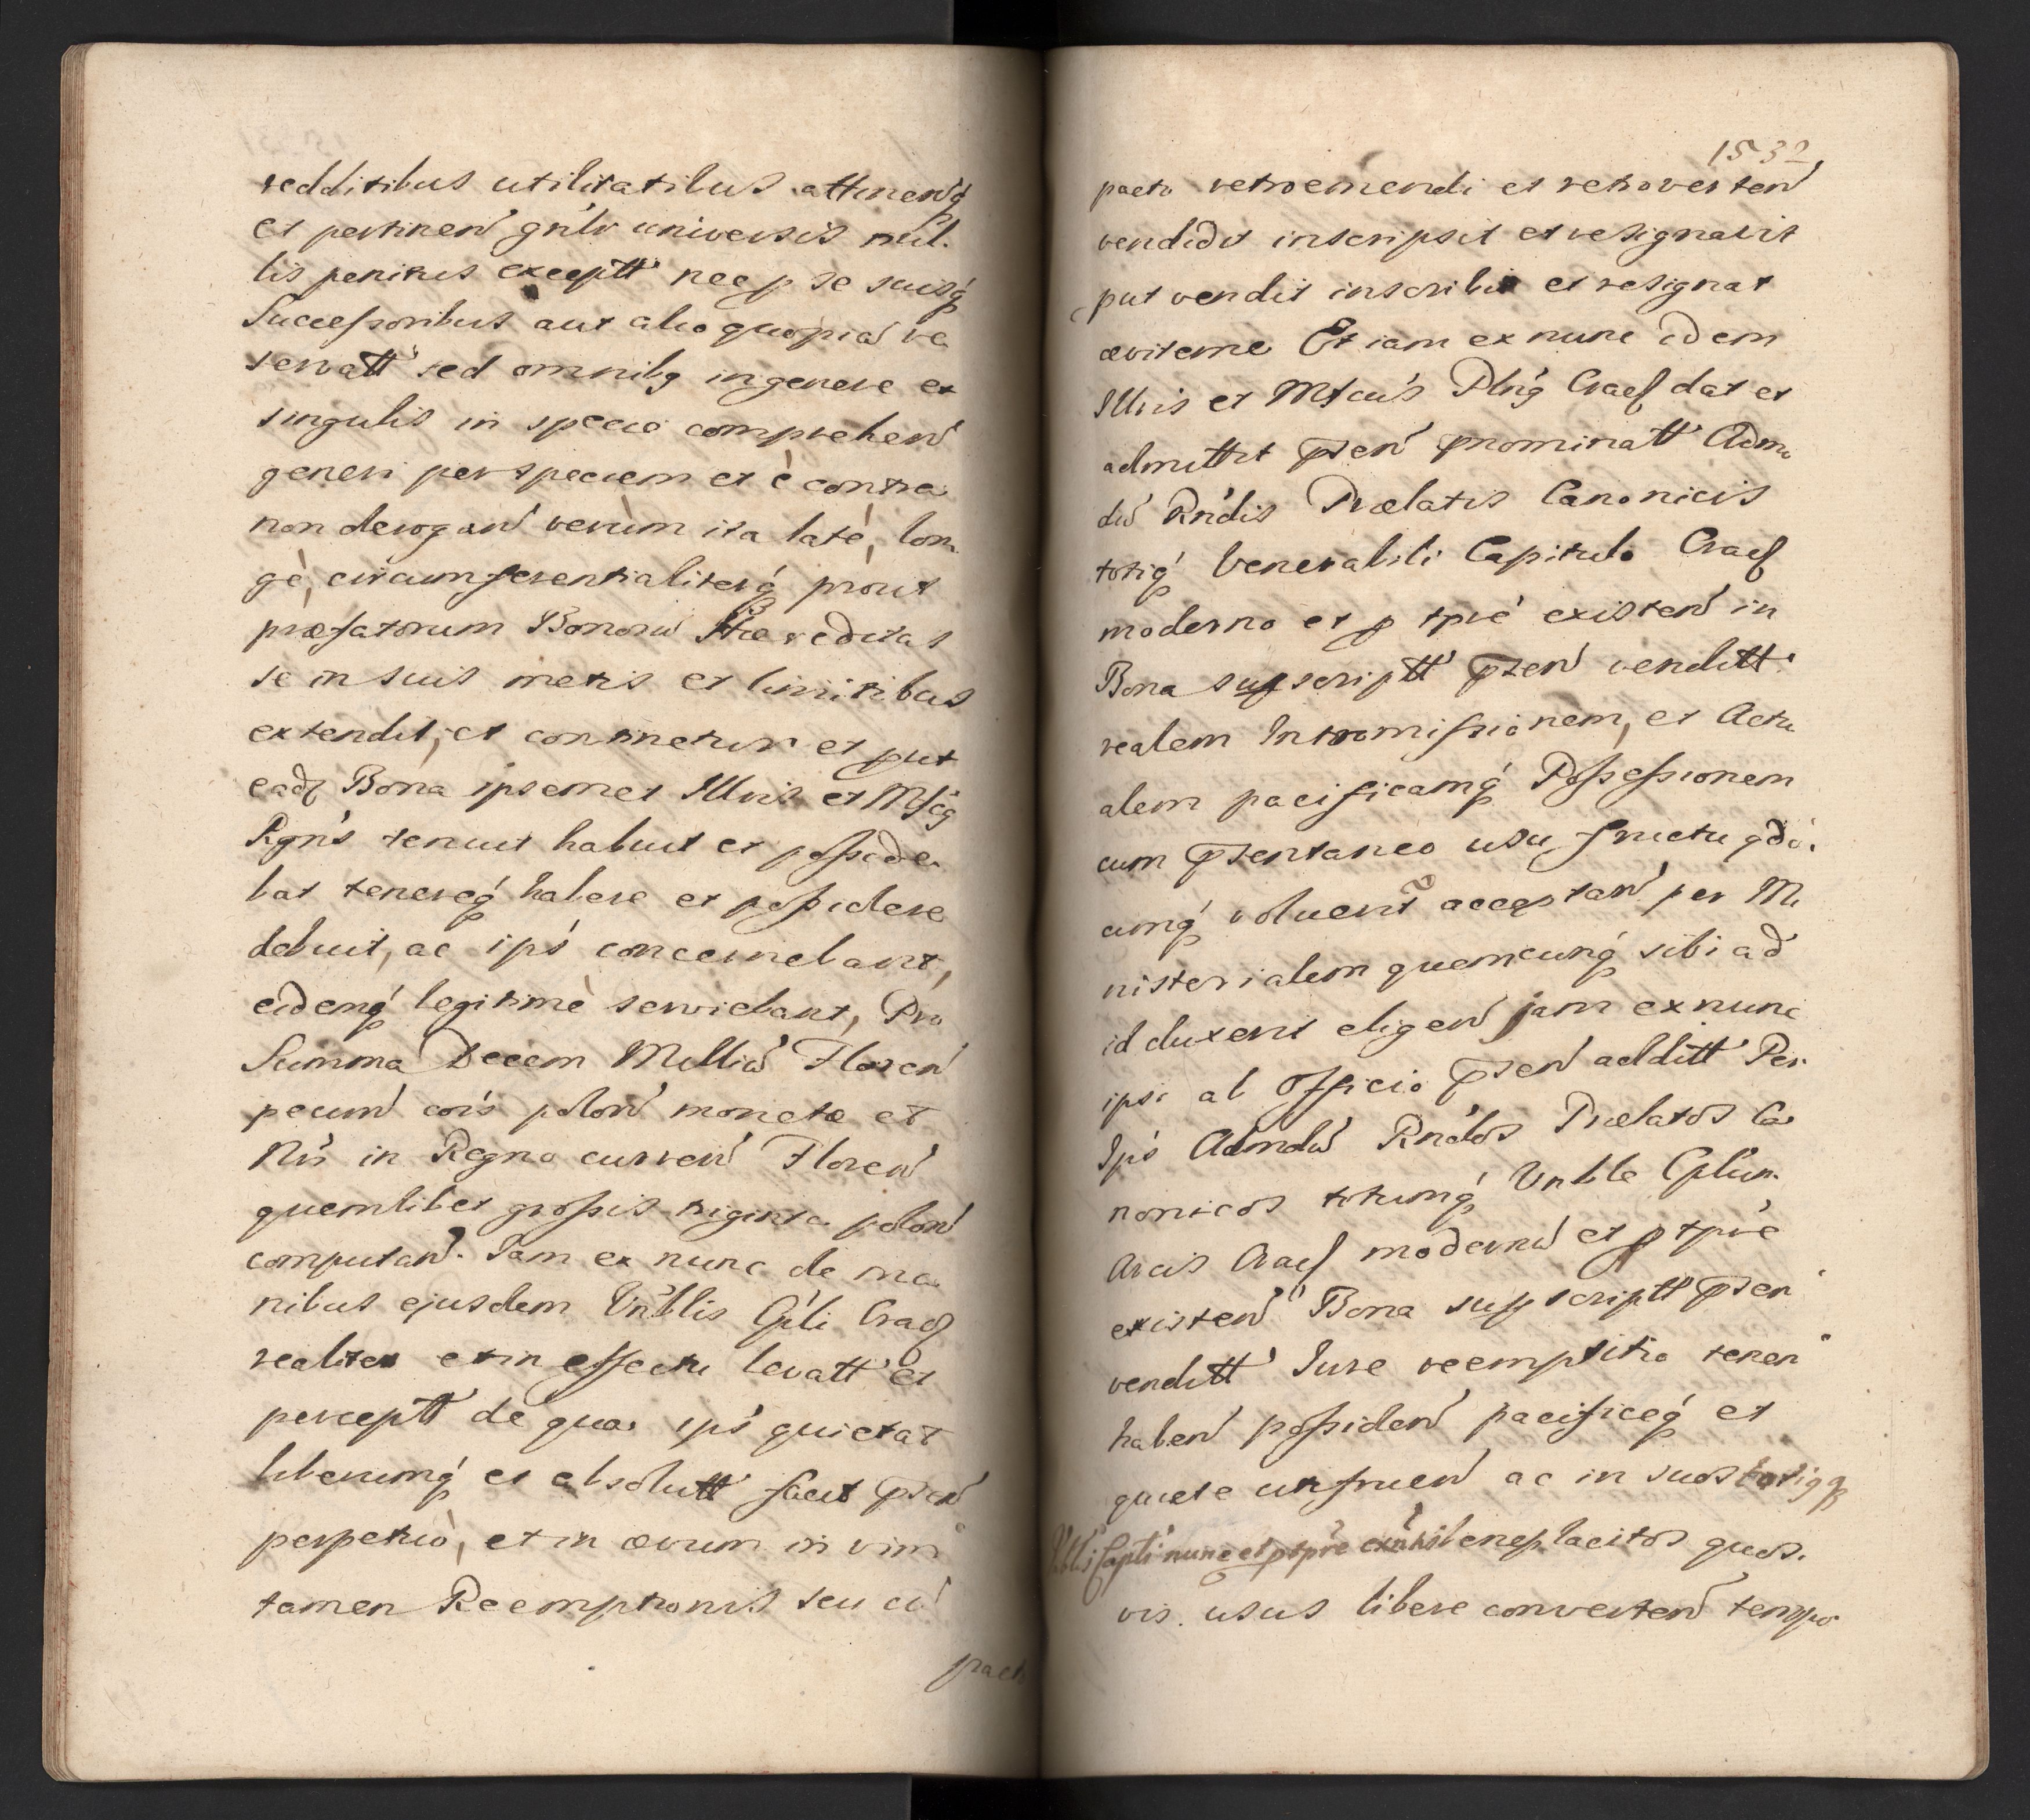 redditibus utilitatibus attinenq́
et pertinen̄ gnĺr universis nul-
lis penitus exceptt nec p se suisq́
Successoribus aut alio quopiā re
servatt sed omnibq ingenere et
singulis in specie comprehen̄
generi per speciem et è contra
non derogan̄ verùm ita latè, lon
gè, circumferentialiterq́ prout
præfatorum Bonorū Hæreditas
se in suis metis et limitibus
extendit, et continetur et put
eadͅ Bona ipsemet Illris et Mfcq
Rgn̄s tenuit habuit et posside
bat tenereq́ habere et possidere
debuit, ac ips̄ concernebant,
eidemq́ legitimè serviebant, Pro
Summa Decem Milliū Floren̄
pecun̄ cōis polon̄ monetæ et
Nri in Regno curren̄ Floren̄
quemlibet grossis triginta polon̄
computan̄. Iam ex nunc de ma
nibus ejusdem Vnblis Cpli Cracͅ
realiter et in effectu levatt et
perceptt de qua ips̄ quietat
liberumq́ et absolutt facit p̄sen̄
perpetuò, et in ævum in vim
tamen Reemptionis seu cū
pact
1532,
pacto retroemendi et retroverten̄
vendidit inscripsit et resignavit
put vendit inscribit et resignat
æviterne Et iam ex nunc idem
Illris et Mfcus Plnq́ Cracͅ dat et
admittit p̄sen̄ p̄nominatt Admo
dū Rndis Prælatis Canonicis
totiq́ Venerabili Capitulo Cracͅ
moderno et p tpre existen̄ in
Bona supscriptt p̄sen̄ venditt
realem Intromissionem, et Actu
alem pacificamq́ Possessionem
cum p̄sentaneo usu fructu qdo
cunq́ voluerit acceptan̄ per Mi
nisterialem quemcunq́ sibi ad
id duxerit eligen̄ jam exnunc
ipsi ab Officio p̄sen̄ additt Per
Ips̄ Admdū Rndos Prælatos Ca
nonicos totumq́ Vnble Cplum
Arcis Cracͅ modernū et p tpre
existen̄ Bona supscriptt p̄sen̄
venditt Iure reemptitio tenen̄
haben̄ possiden̄ pacificeq́ et
quiete utifruen̄ ac in suos totiqq
Vnblis Capli nunc et p tpre exnītis beneplacitos quos-
vis usus libere converten̄ tempo